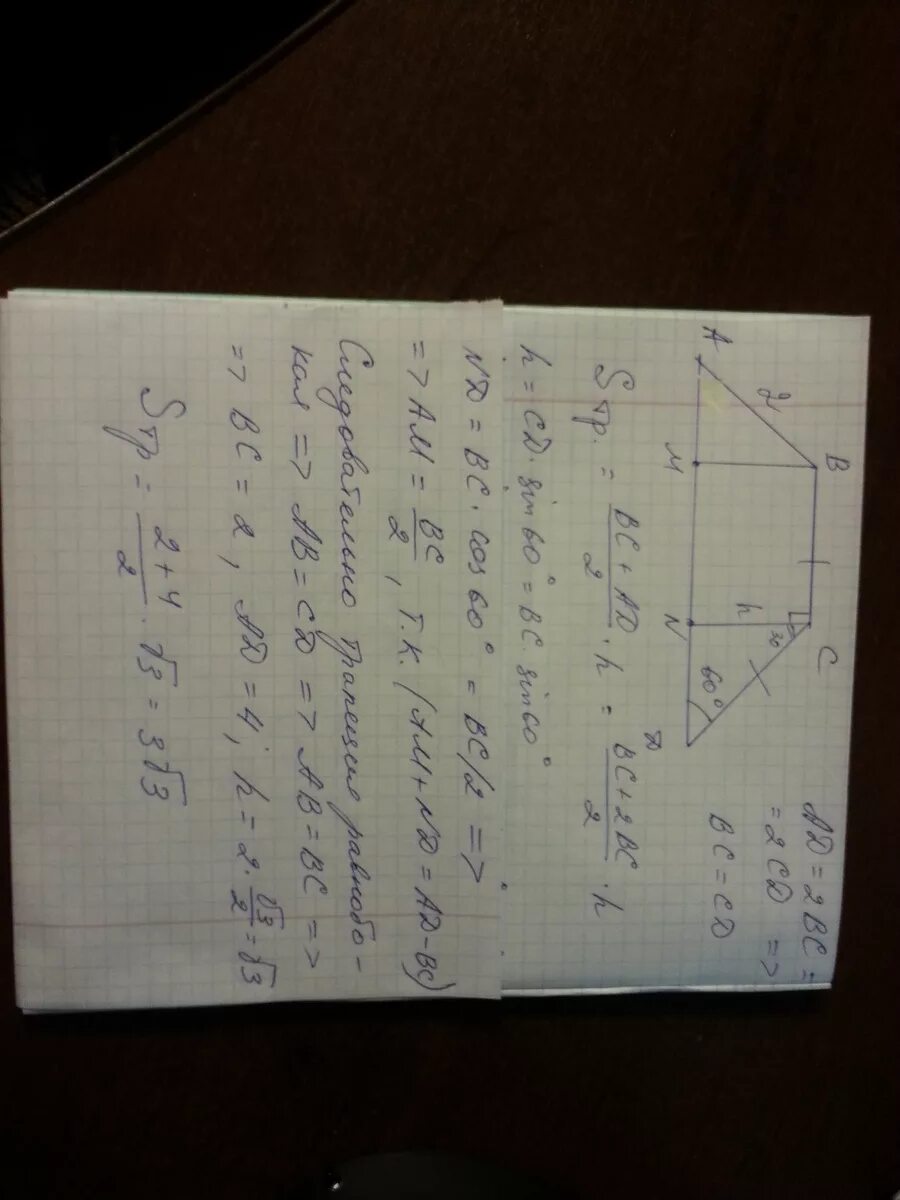 A
2
B
C
M
N
h
30
60°
D
AD = 2BC =
= 2CD =>
BC = CD
Sтр. = BC + AD / 2 · h = BC + 2BC / 2 · h
h = CD · sin 60° = BC · sin 60°
ND = BC · cos 60° = BC/2 =>
=> AM = BC / 2, т.к. (AM + ND = AD - BC)
Следовательно трапеция равнобо-
кая => AB = CD => AB = BC =>
=> BC = 2, AD = 4; h = 2 · √3 / 2 = √3
Sтр = 2 + 4 / 2 · √3 = 3√3